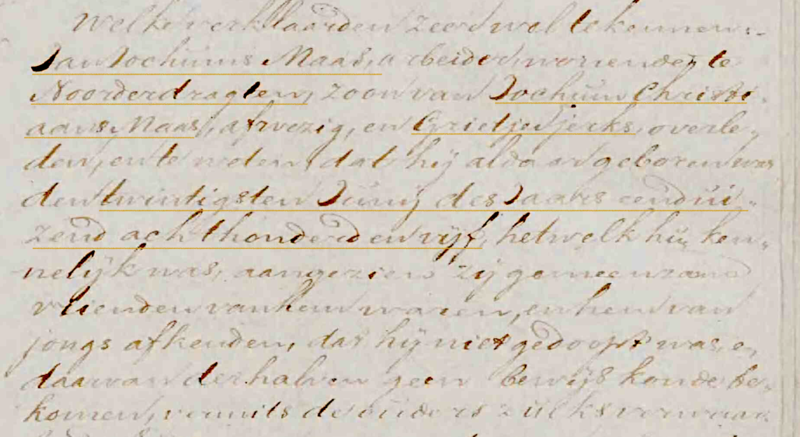 welke verklaarden zeer wel te kennen:-
Jan Jochums Maas, arbeider, wonende te
Noorderdragten, zoon van Jochum Christi-
aans Maas, afwezig, en Grietje Jerks, overle-
den, en te weten, dat hij aldaar geboren was
den twintigsten Junij des Jaars eendui-
zend achthonderd en vijf, hetwelk hun ken-
nelijk was, aangezien zij gemeenzame
vrienden van hem waren, en hem van
jongs af kenden, dat hij niet gedoopt was, en
daarvan derhalven geen bewijs konde be-
komen, vermits de ouders zulks